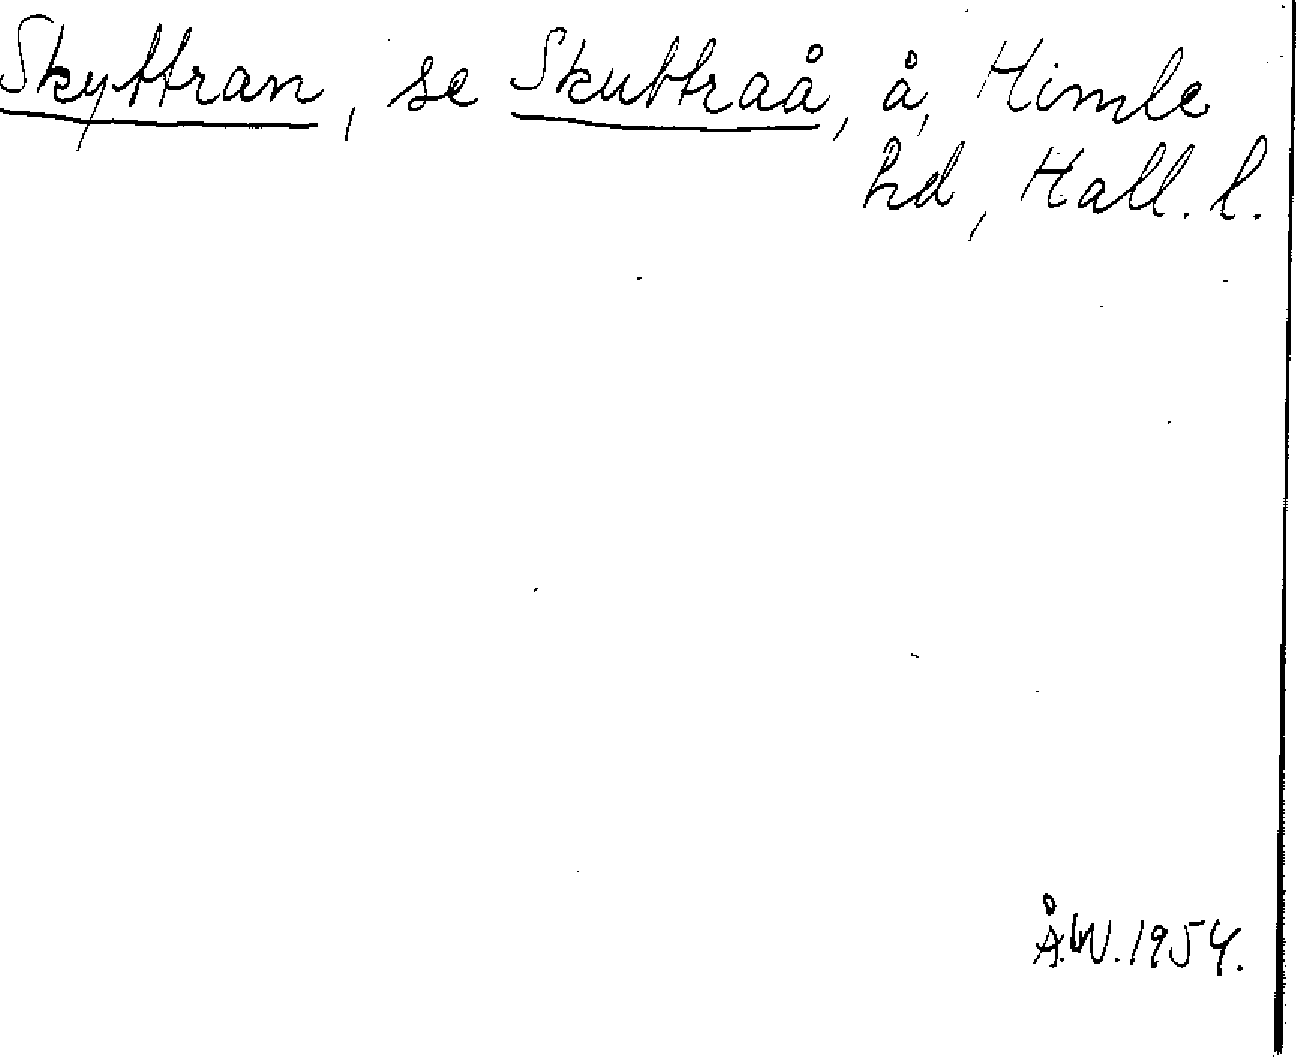 Skyttran, se Skuttraå, å, Himle
hd, Hall. l.
Å.W. 1954.